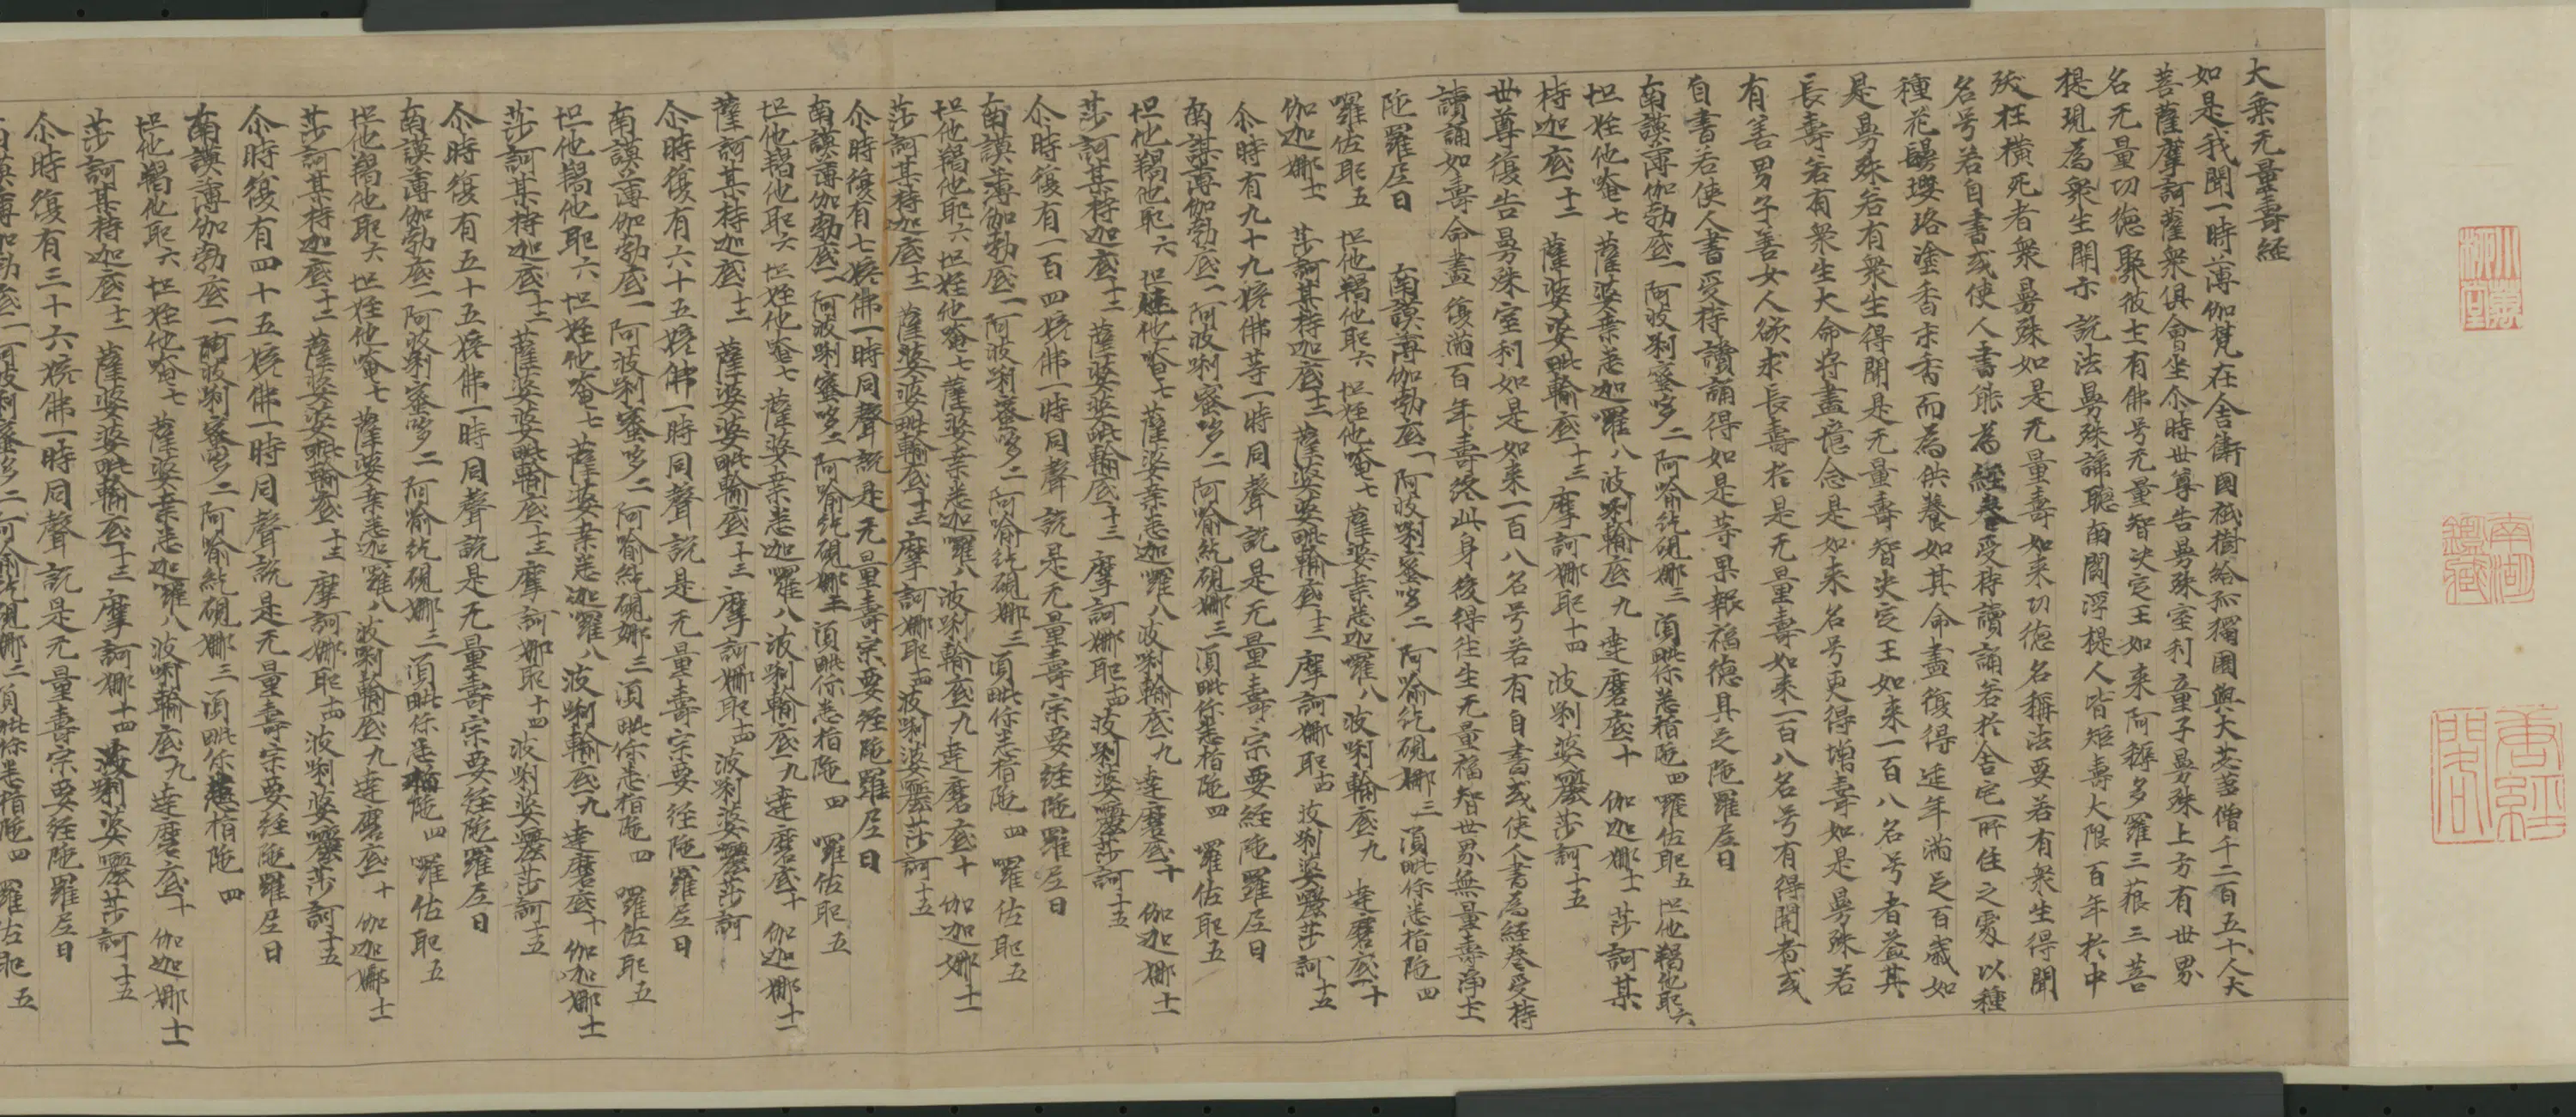 大乘无量壽經
如是我聞一時薄伽梵在舍衛國祇樹給孤獨園與大苾芻僧千二百五十人大
菩薩摩訶薩衆俱會坐尒時世尊告曼殊室利童子曼殊上方有世界
名无量功德聚彼土有佛号无量智決定王如来阿耨多羅三藐三菩
提現為衆生開示說法曼殊諦聽南閻浮提人皆短壽大限百年於中
殀枉橫死者衆曼殊如是无量壽如来功德名稱法要若有衆生得聞
名号若自書或使人書能為經卷受持讀誦若於舍宅所住之處以種
種花鬘瓔珞塗香末香而為供養如其命盡復得延年滿足百歲如
是曼殊若有衆生得聞是无量壽智決定王如来一百八名号者益其
長壽若有衆生大命將盡憶念是如来名号更得增壽如是曼殊若
有善男子善女人欲求長壽於是无量壽如来一百八名号有得聞者或
自書若使人書受持讀誦得如是等果報福德具足陁羅尼曰
南謨薄伽勃底一 阿波唎蜜哆二 阿喻紇硯娜三 須毗你悉指陁四 羅佐耶五 怛他羯他耶六
怛姪他唵七 薩婆桒悉迦羅八 波唎輸底九 達磨底十 伽迦娜十一 莎訶某
持迦底十二 薩婆婆毗輸底十三 摩訶娜耶十四 波唎婆囇莎訶十五
世尊復告曼殊室利如是如来一百八名号若有自書或使人書為經卷受持
讀誦如壽命盡復滿百年壽終此身後得往生无量福智世界無量壽淨土
陁羅尼曰 南謨薄伽勃底一 阿波唎蜜哆二 阿喻紇硯娜三 須毗你悉指陁四
囉佐耶五 怛他羯他耶六 怛姪他唵七 薩婆桒悉迦囉八 波唎輸底九 達磨底十
伽迦娜十一 莎訶某持迦底十二 薩婆婆毗輸底十三 摩訶娜耶十四 波唎婆囇莎訶十五
尒時有九十九姟佛等一時同聲說是无量壽宗要經陁羅尼曰
南謨薄伽勃底一 阿波唎蜜哆二 阿喻紇硯娜三 須毗你悉指陁四 羅佐耶五
怛他羯他耶六 怛姪他唵七 薩婆桒悉迦羅八 波唎輸底九 達磨底十 伽迦娜十一
莎訶某持迦底十二 薩婆婆毗輸底十三 摩訶娜耶十四 波唎婆囇莎訶十五
尒時復有一百四姟佛一時同聲說是无量壽宗要經陁羅尼曰
南謨薄伽勃底一 阿波唎蜜哆二 阿喻紇硯娜三 須毗你悉指陁四 羅佐耶五
怛他羯他耶六 怛姪他唵七 薩婆桒悉迦羅八 波唎輸底九 達磨底十 伽迦娜十一
莎訶某持迦底十二 薩婆婆毗輸底十三 摩訶娜耶十四 波唎婆囇莎訶十五
尒時復有七姟佛一時同聲說是无量壽宗要經陁羅尼曰
南謨薄伽勃底一 阿波唎蜜哆二 阿喻紇硯娜三 須毗你悉指陁四 羅佐耶五
怛他羯他耶六 怛姪他唵七 薩婆桒悉迦羅八 波唎輸底九 達磨底十 伽迦娜十一
薩訶某持迦底十二 薩婆婆毗輸底十三 摩訶娜耶十四 波唎婆囇莎訶
尒時復有六十五姟佛一時同聲說是无量壽宗要經陁羅尼曰
南謨薄伽勃底一 阿波唎蜜哆二 阿喻紇硯娜三 須毗你悉指陁四 羅佐耶五
怛他羯他耶六 怛姪他唵七 薩婆桒悉迦羅八 波唎輸底九 達磨底十 伽迦娜十一
莎訶某持迦底十二 薩婆婆毗輸底十三 摩訶娜耶十四 波唎婆囇莎訶十五
尒時復有五十五姟佛一時同聲說是无量壽宗要經陁羅尼曰
南謨薄伽勃底一 阿波唎蜜哆二 阿喻紇硯娜三 須毗你悉指陁四 羅佐耶五
怛他羯他耶六 怛姪他唵七 薩婆桒悉迦羅八 波唎輸底九 達磨底十 伽迦娜十一
莎訶某持迦底十二 薩婆婆毗輸底十三 摩訶娜耶十四 波唎婆囇莎訶十五
尒時復有四十五姟佛一時同聲說是无量壽宗要經陁羅尼曰
南謨薄伽勃底一 阿波唎蜜哆二 阿喻紇硯娜三 須毗你悉指陁四
怛他羯他耶六 怛姪他唵七 薩婆桒悉迦羅八 波唎輸底九 達磨底十 伽迦娜十一
莎訶某持迦底十二 薩婆婆毗輸底十三 摩訶娜十四 波唎婆囇莎訶十五
尒時復有三十六姟佛一時同聲說是无量壽宗要經陁羅尼曰
南謨薄伽勃底一 阿波唎蜜哆二 阿喻紇硯娜三 須毗你悉指陁四 羅佐耶五